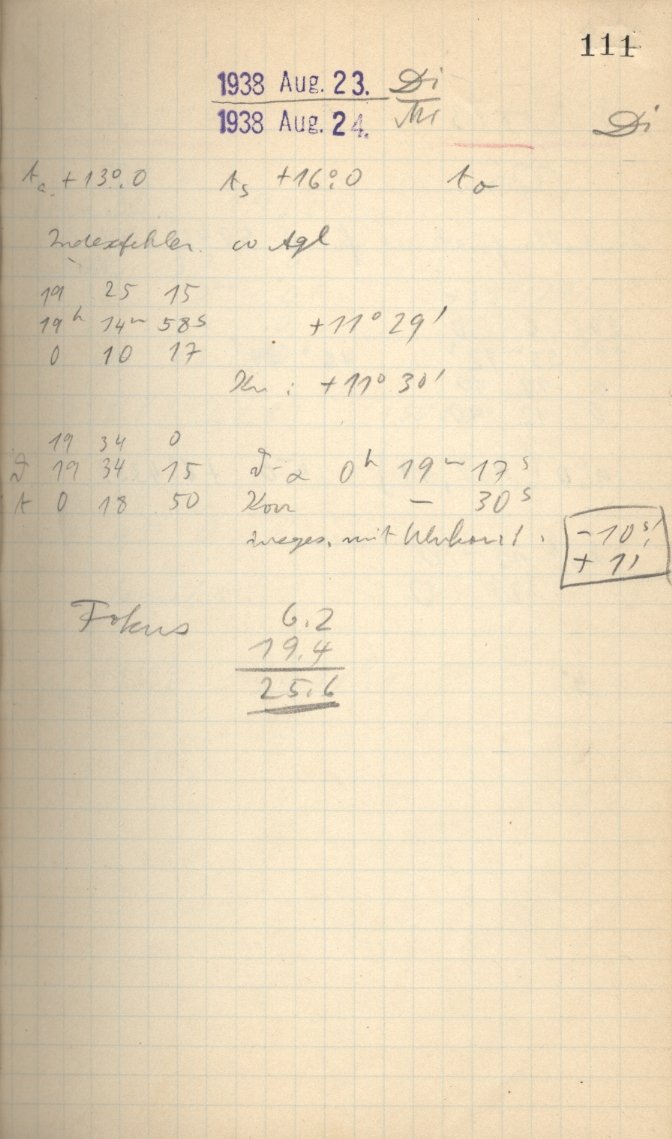 111
1938 Aug. 23. Di
1938 Aug. 24. Mi
Di
ta +13°.0 ts +16°.0 to
Indexfehler α Aql
19 25 15
19h 14m 58s +11° 29'
0 10 17
Kr : +11° 30'
19 34 0
19 34 15 α 0h 19m 17s
t 0 18 50 Korr - 30s
insges. mit Uhrkorr! : -10s!
+ 1'
Fokus 6.2
19.4
25.6